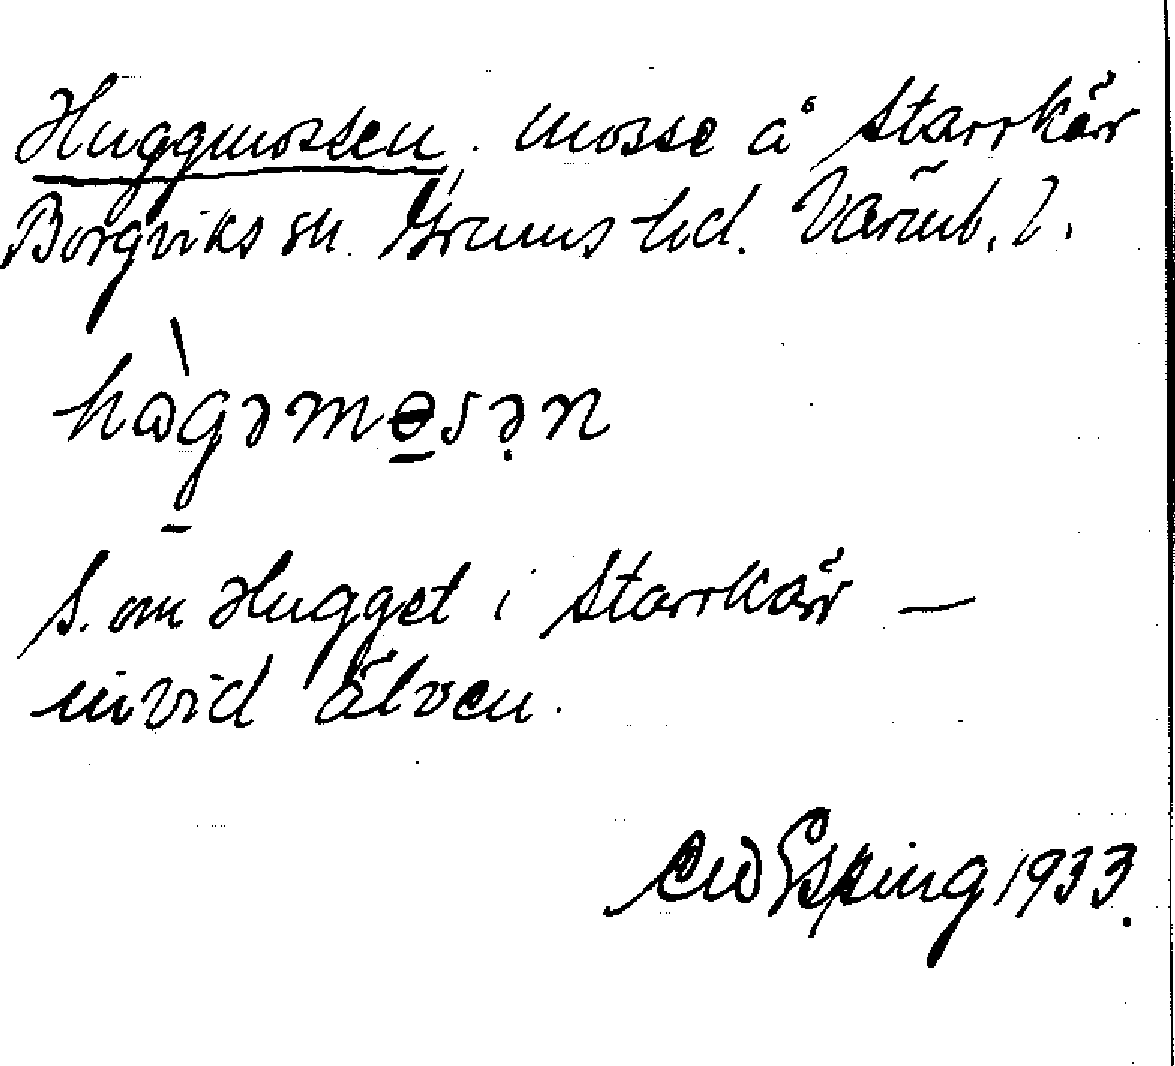 Huggmossen. mosse å Starrkärr
Borgviks sn. Grums hd. Värml. l.
hàgəmɵsən
S. om Hugget i Starrkärr —
invid älven.
Esping 1933.